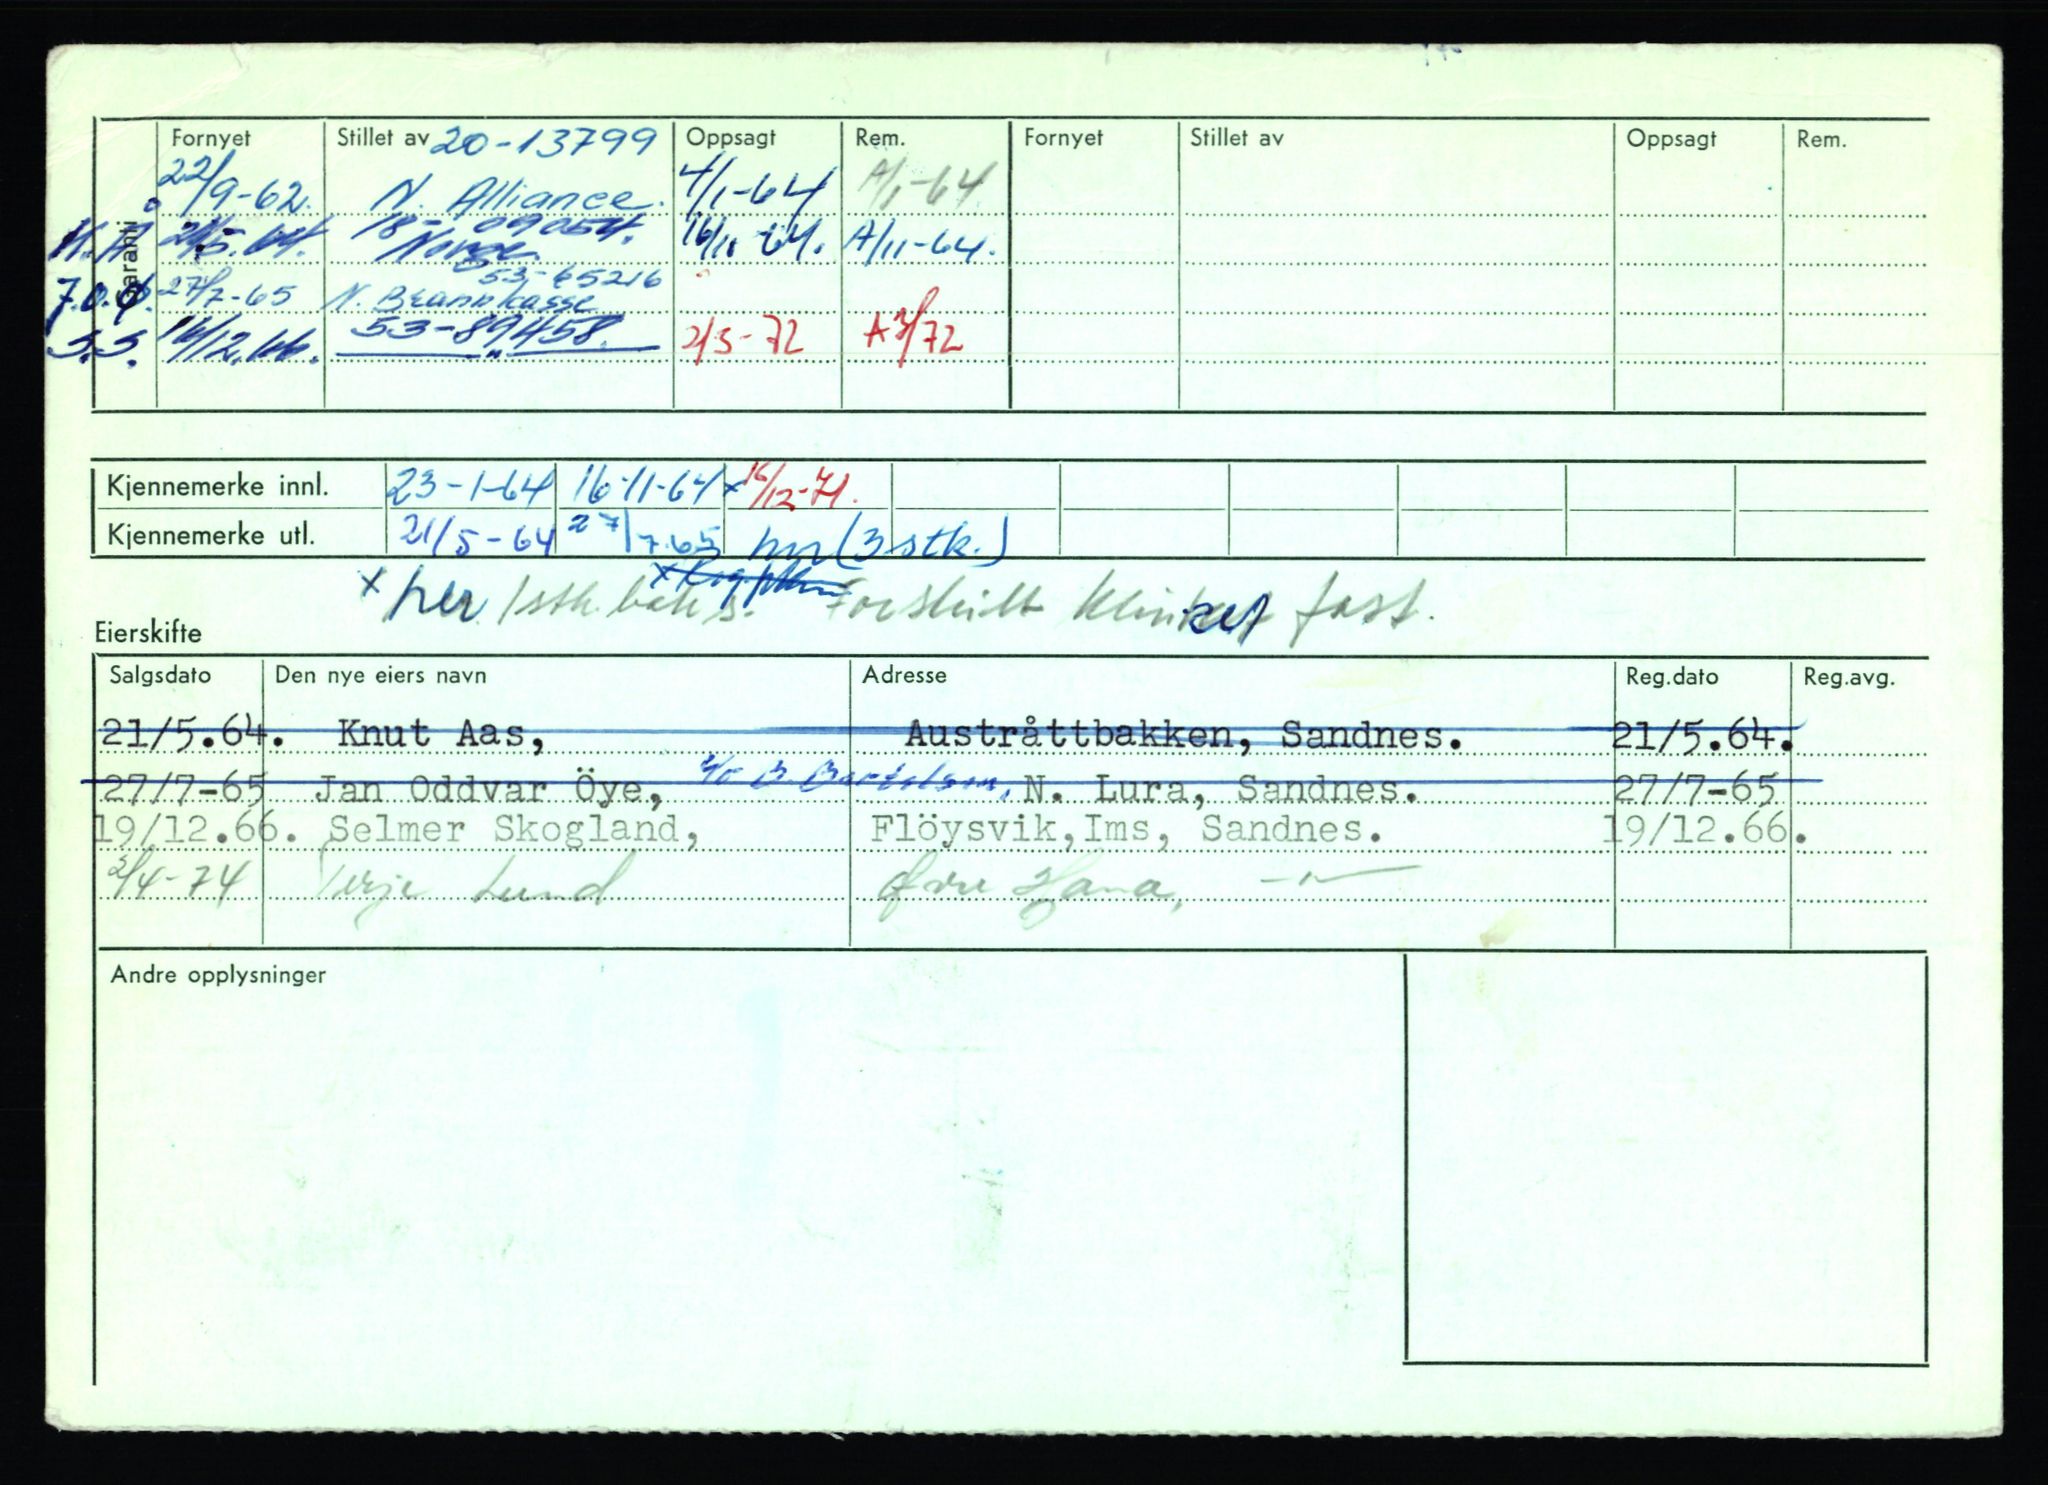 Fornyet Stillet av 20-13799 Oppsagt Rem. Fornyet Stillet av Oppsagt Rem.
Garanti
22/9-62. N. Alliance. 4/1-64 A/1-64
21/5.64. 18-09054. Norge 16/11-64. A/11-64.
53-65216
J.O.Ø. 27/7-65 N. Brannkasse
S.S. 53-89458. 2/3-72 A3/72
Kjennemerke innl. 23-1-64 16-11-64 x 16/12-71.
Kjennemerke utl. 21/5-64 27/7.65 (3 stk.)
x her 1 stk. Forskilt fast.
Eierskifte
Salgsdato Den nye eiers navn Adresse Reg.dato Reg.avg.
21/5.64. Knut Aas, Austråttbakken, Sandnes. 21/5.64.
27/7-65 Jan Oddvar Öye, c/o B. Bertelsen, N. Lura, Sandnes. 27/7-65
19/12.66. Selmer Skogland, Flöysvik, Ims, Sandnes. 19/12.66.
2/4-74 Terje Lund Øvre Hana, -"-
Andre opplysninger